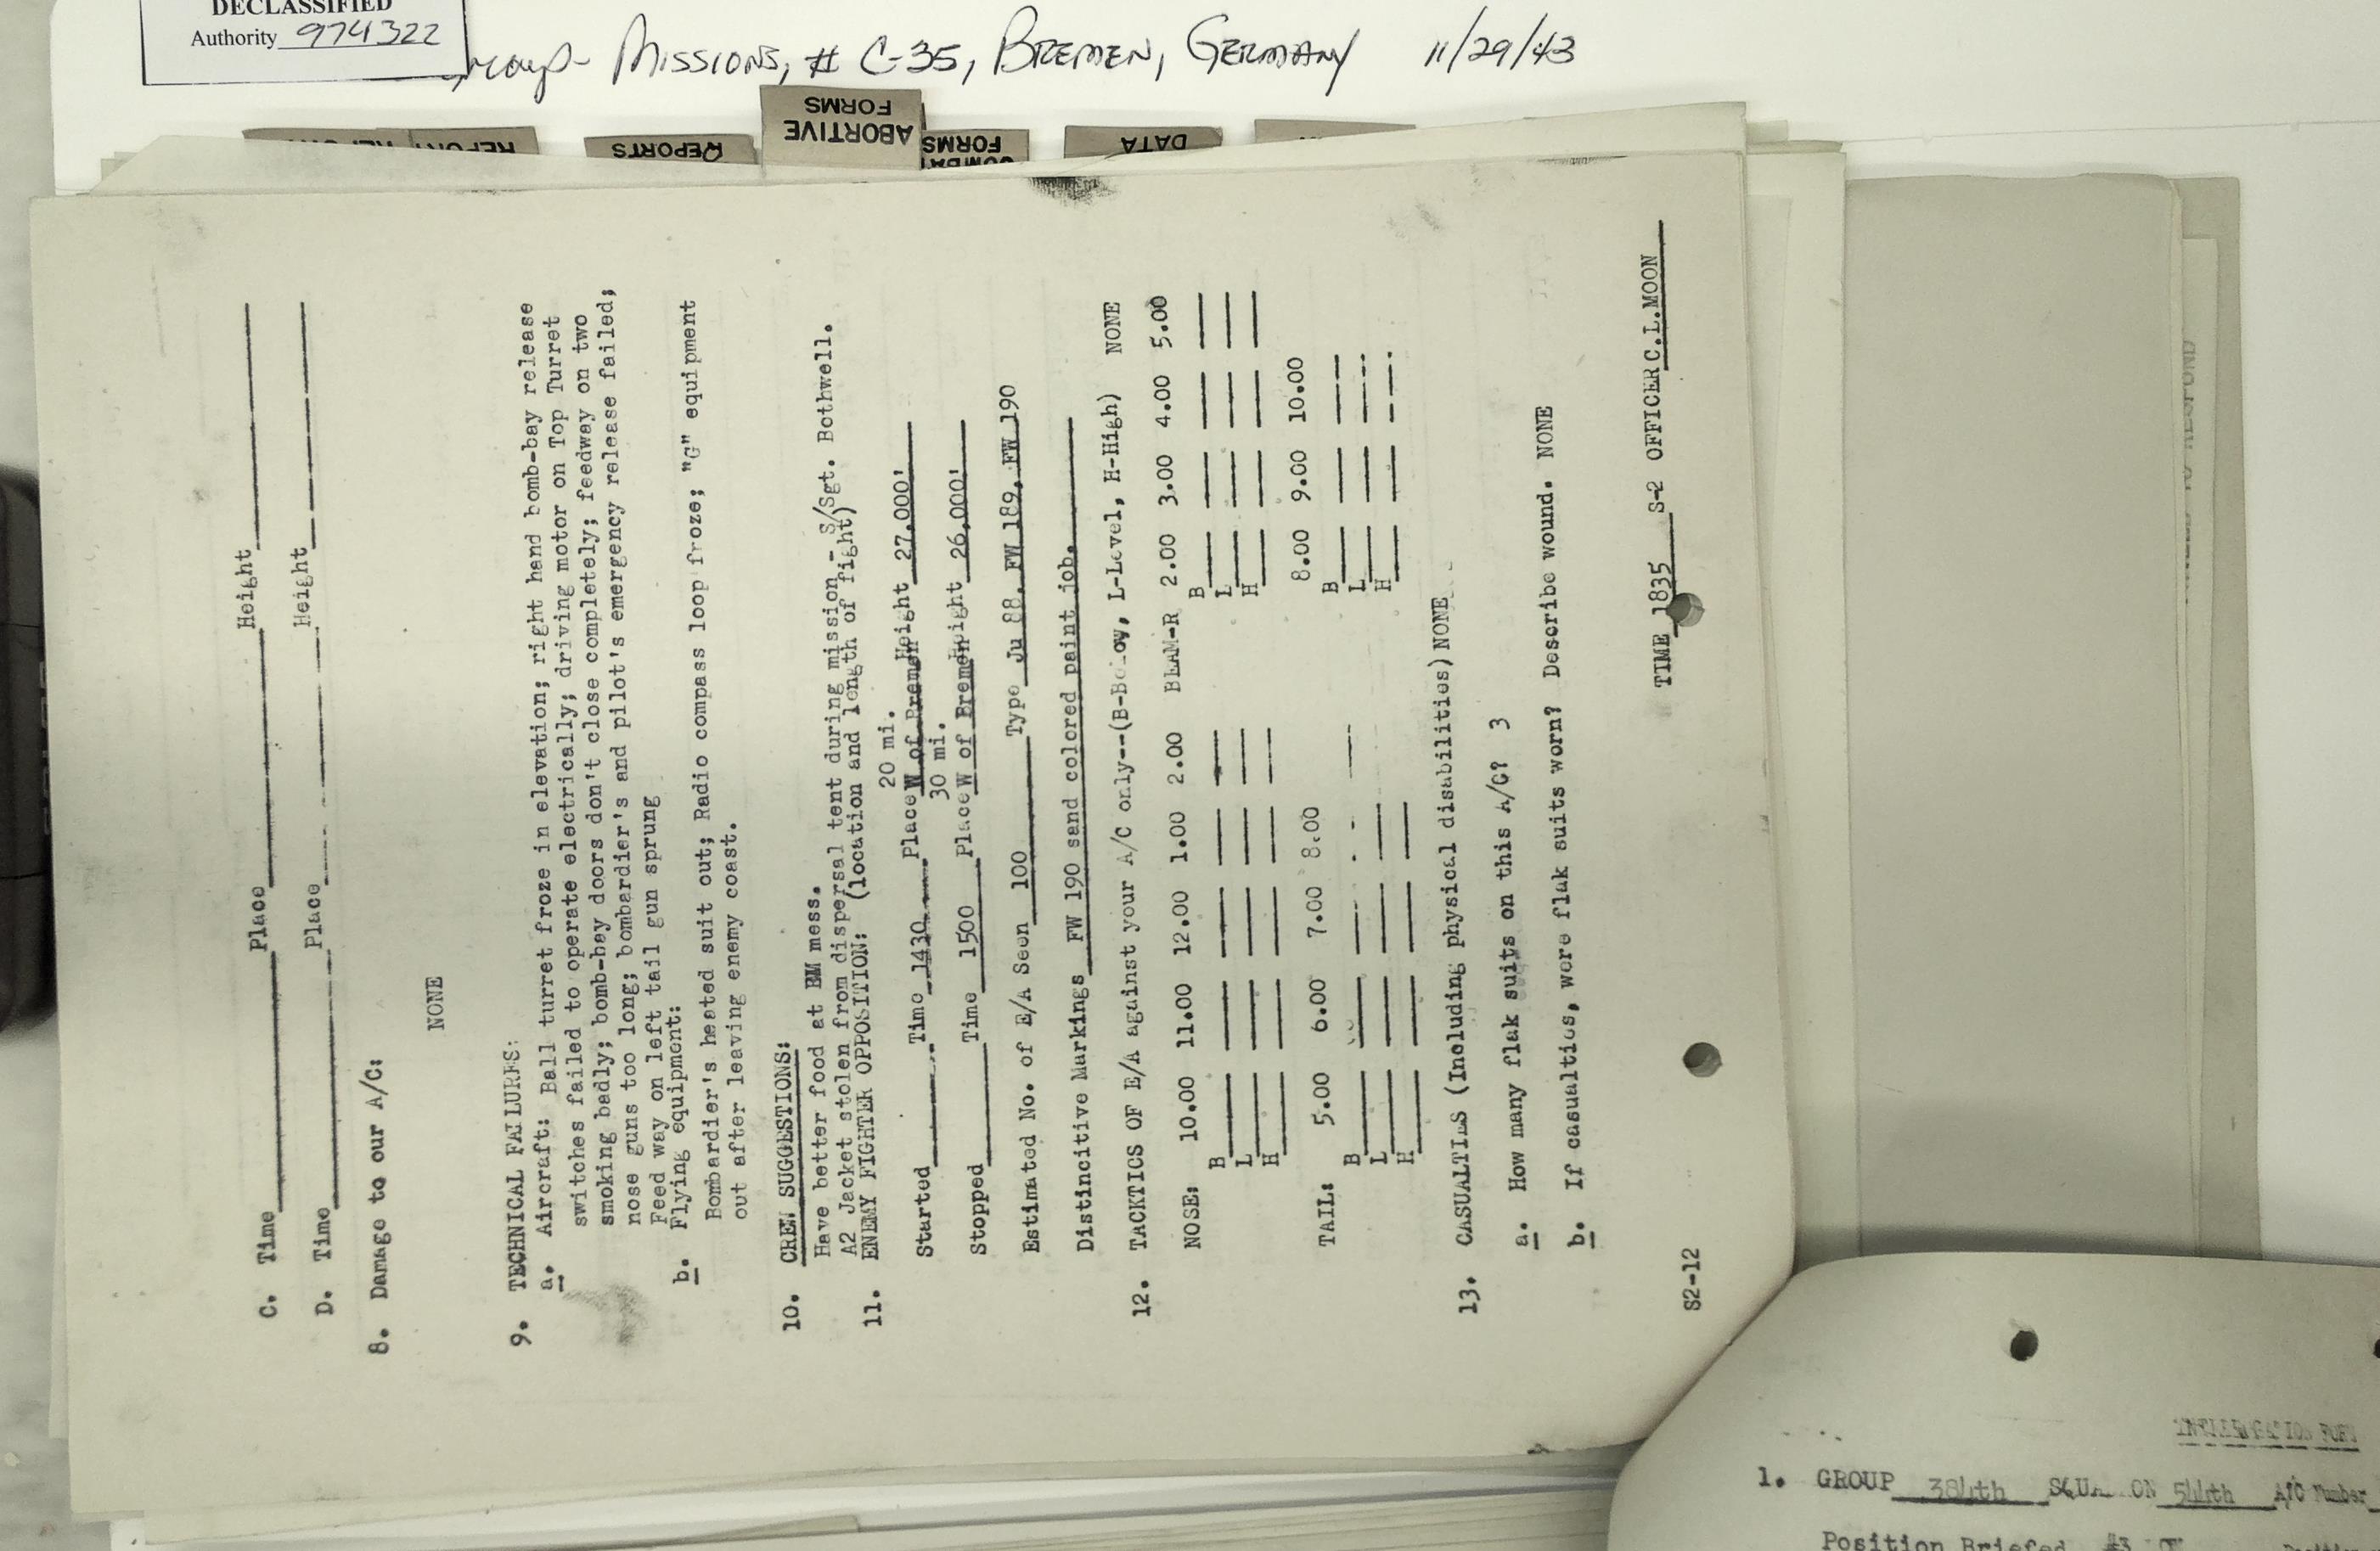 DECLASSIFIED
Authority 974322
Group- Missions, # C-35, Bremen, Germany 11/29/43
REPORT
REPORTS
ABORTIVE
FORMS
COMBAT
FORMS
DATA
C. Time Place Height
D. Time Place Height
8. Damage to our A/C:
NONE
9. TECHNICAL FAILURES:
a. Aircraft: Ball turret froze in elevation; right hand bomb-bay release
switches failed to operate electrically; driving motor on Top Turret
smoking badly; bomb-bay doors don't close completely; feedway on two
nose guns too long; bombardier's and pilot's emergency release failed;
Feed way on left tail gun sprung
b. Flying equipment:
Bombardier's heated suit out; Radio compass loop froze; "G" equipment
out after leaving enemy coast.
10. CREW SUGGESTIONS:
Have better food at EM mess.
A2 Jacket stolen from dispersal tent during mission - S/Sgt. Bothwell.
11. ENEMY FIGHTER OPPOSITION: (location and length of fight)
20 mi.
Started Time 1430 Place W of Bremen Height 27,000'
30 mi.
Stopped Time 1500 Place W of Bremen Height 26,000'
Estimated No. of E/A Seen 100 Type Ju 88, FW 189, FW 190
Distincitive Markings FW 190 sand colored paint job.
12. TACKTICS OF E/A against your A/C only--(B-Below, L-Level, H-High) NONE
NOSE: 10.00 11.00 12.00 1.00 2.00 BEAM-R 2.00 3.00 4.00 5.00
B B
L L
H H
TAIL: 5.00 6.00 7.00 8.00 8.00 9.00 10.00
B B
L L
H H
13. CASUALTIES (Including physical disabilities) NONE
a. How many flak suits on this A/C? 3
b. If casualties, were flak suits worn? Describe wound. NONE
TIME 1835 S-2 OFFICER C.L.MOON
S2-12
1. GROUP 384th 544th A/C Number
Position Briefed #3